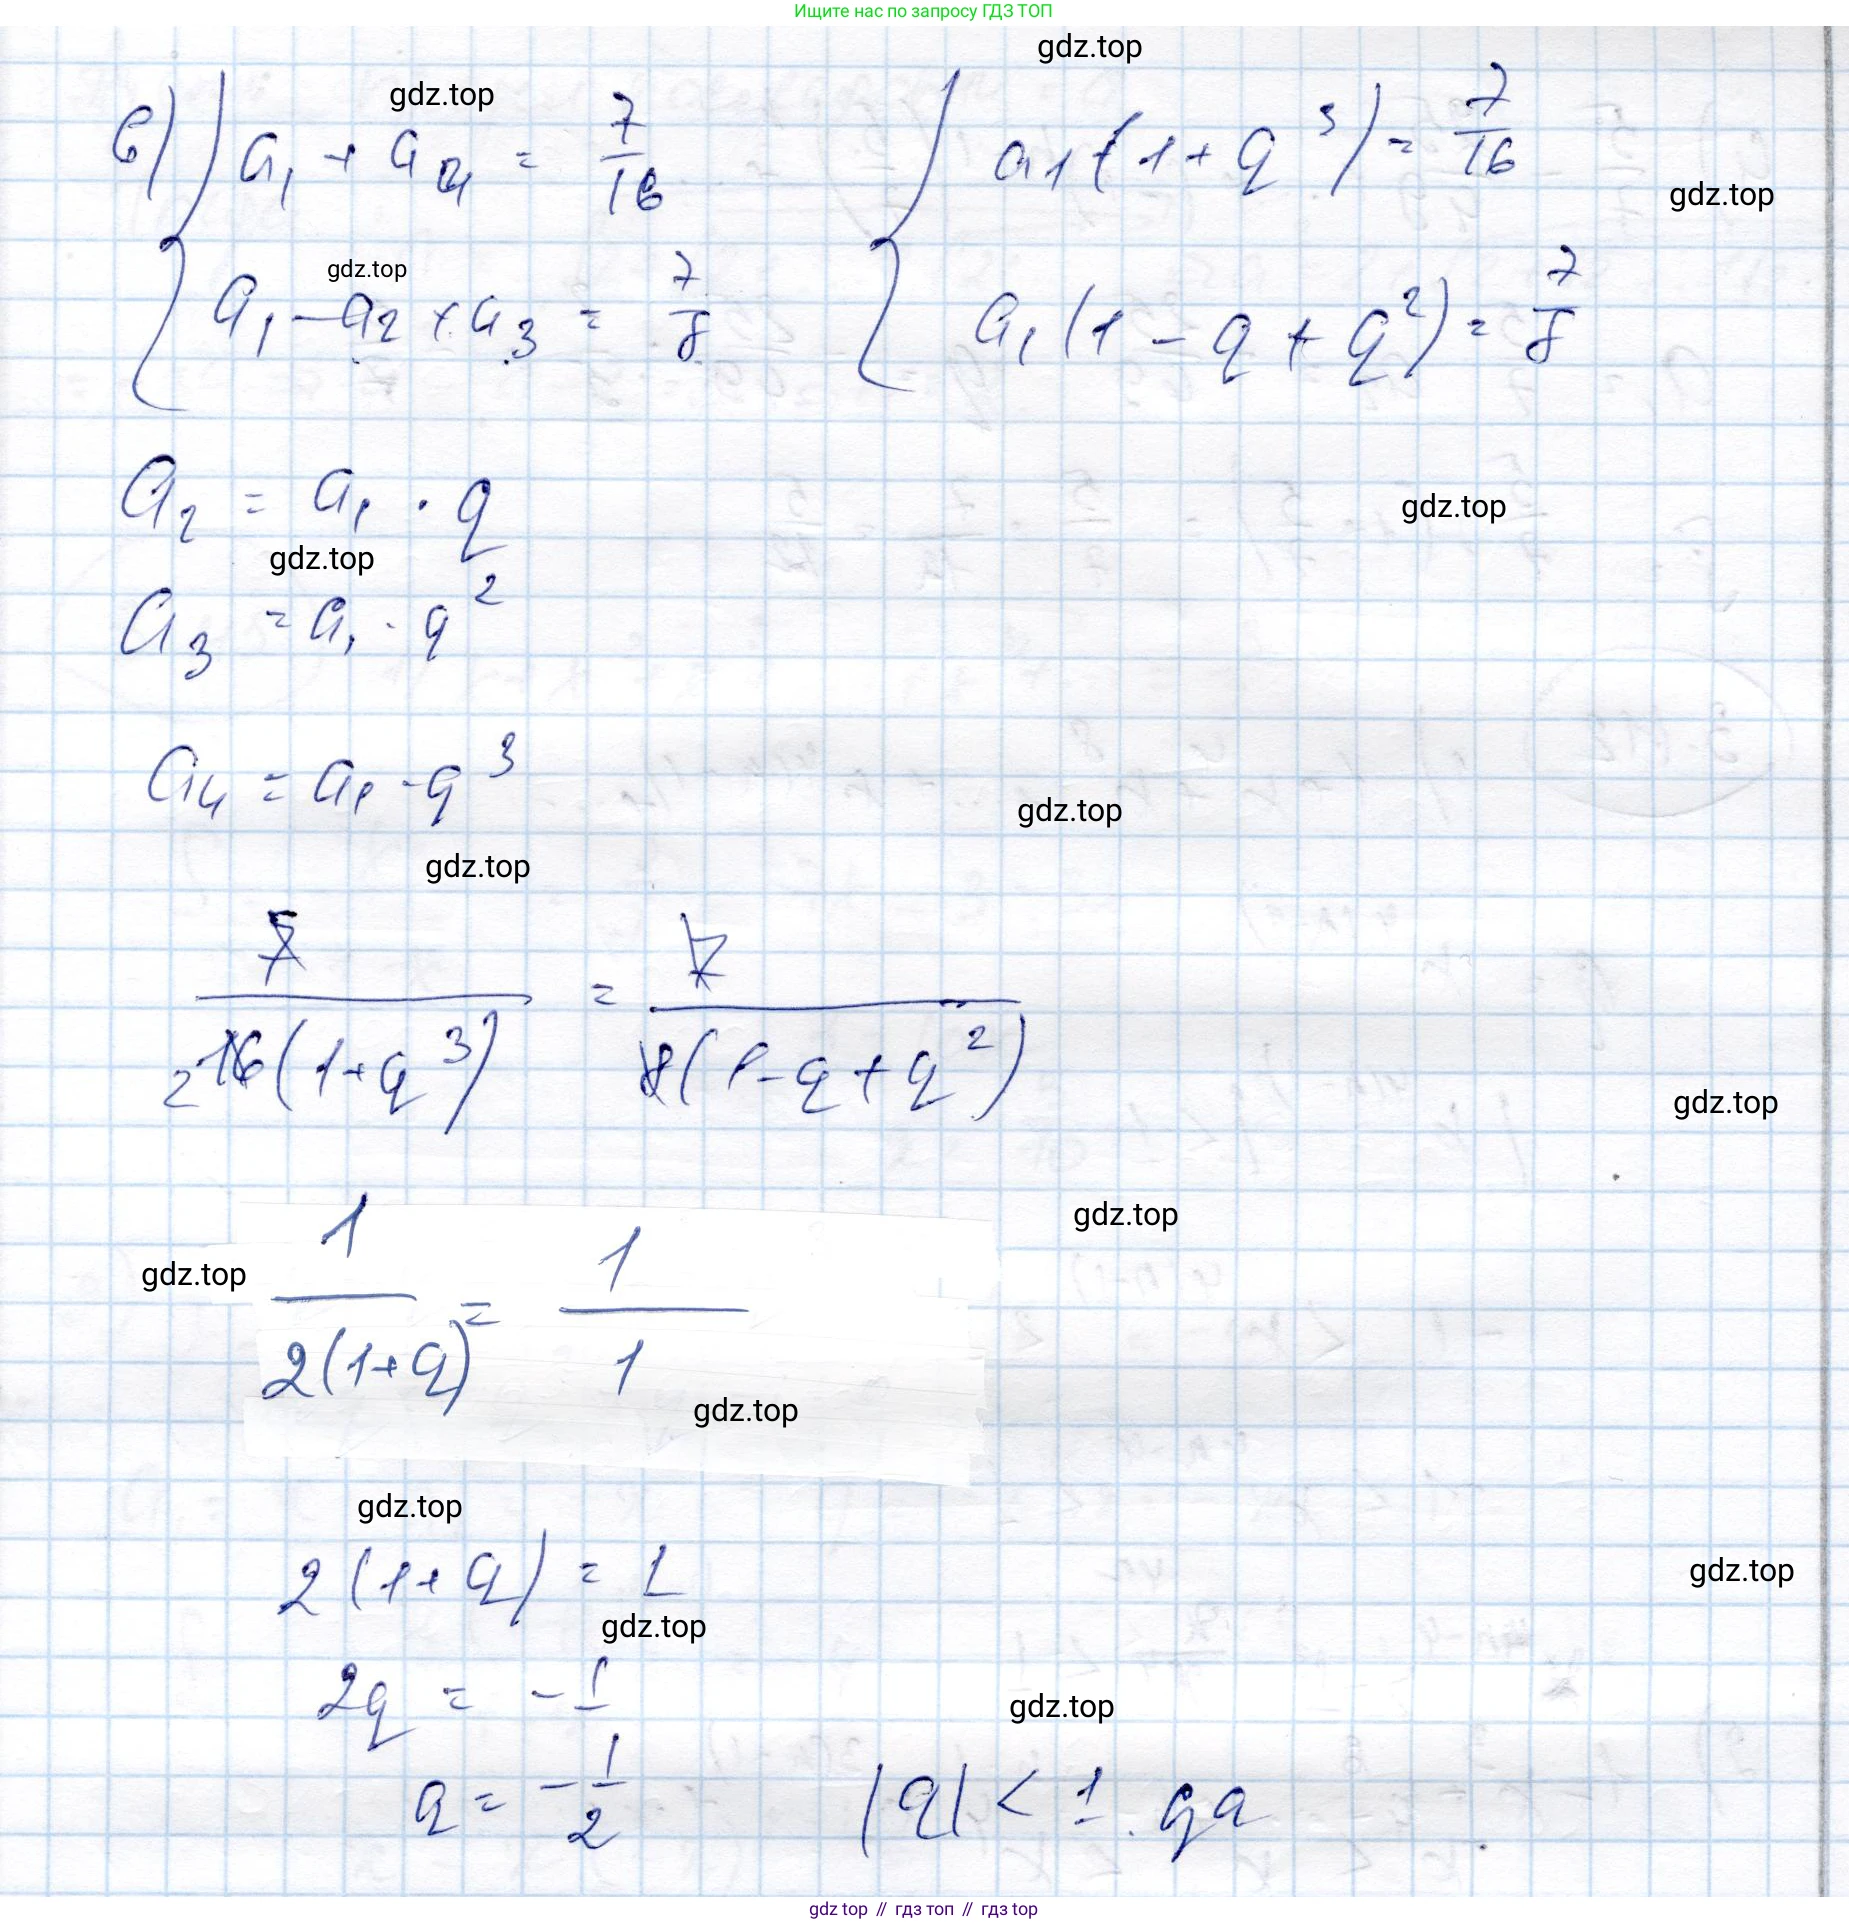 Ищите нас по запросу ГДЗ ТОП
gdz.top
gdz.top
б) { a₁ + a₄ = 7/16 { a₁(1 + q³) = 7/16
gdz.top
gdz.top
a₁ - a₂ + a₃ = 7/8 a₁(1 - q + q²) = 7/8
a₂ = a₁ · q
gdz.top
gdz.top
a₃ = a₁ · q²
a₄ = a₁ · q³
gdz.top
gdz.top
7/16(1+q³) = 7/8(1-q+q²)
2
gdz.top
gdz.top
gdz.top
1/2(1+q) = 1/1
gdz.top
gdz.top
2(1+q) = 1
gdz.top
gdz.top
2q = -1
gdz.top
q = -1/2 |q| < 1 да
gdz top // гдз топ // гдз top